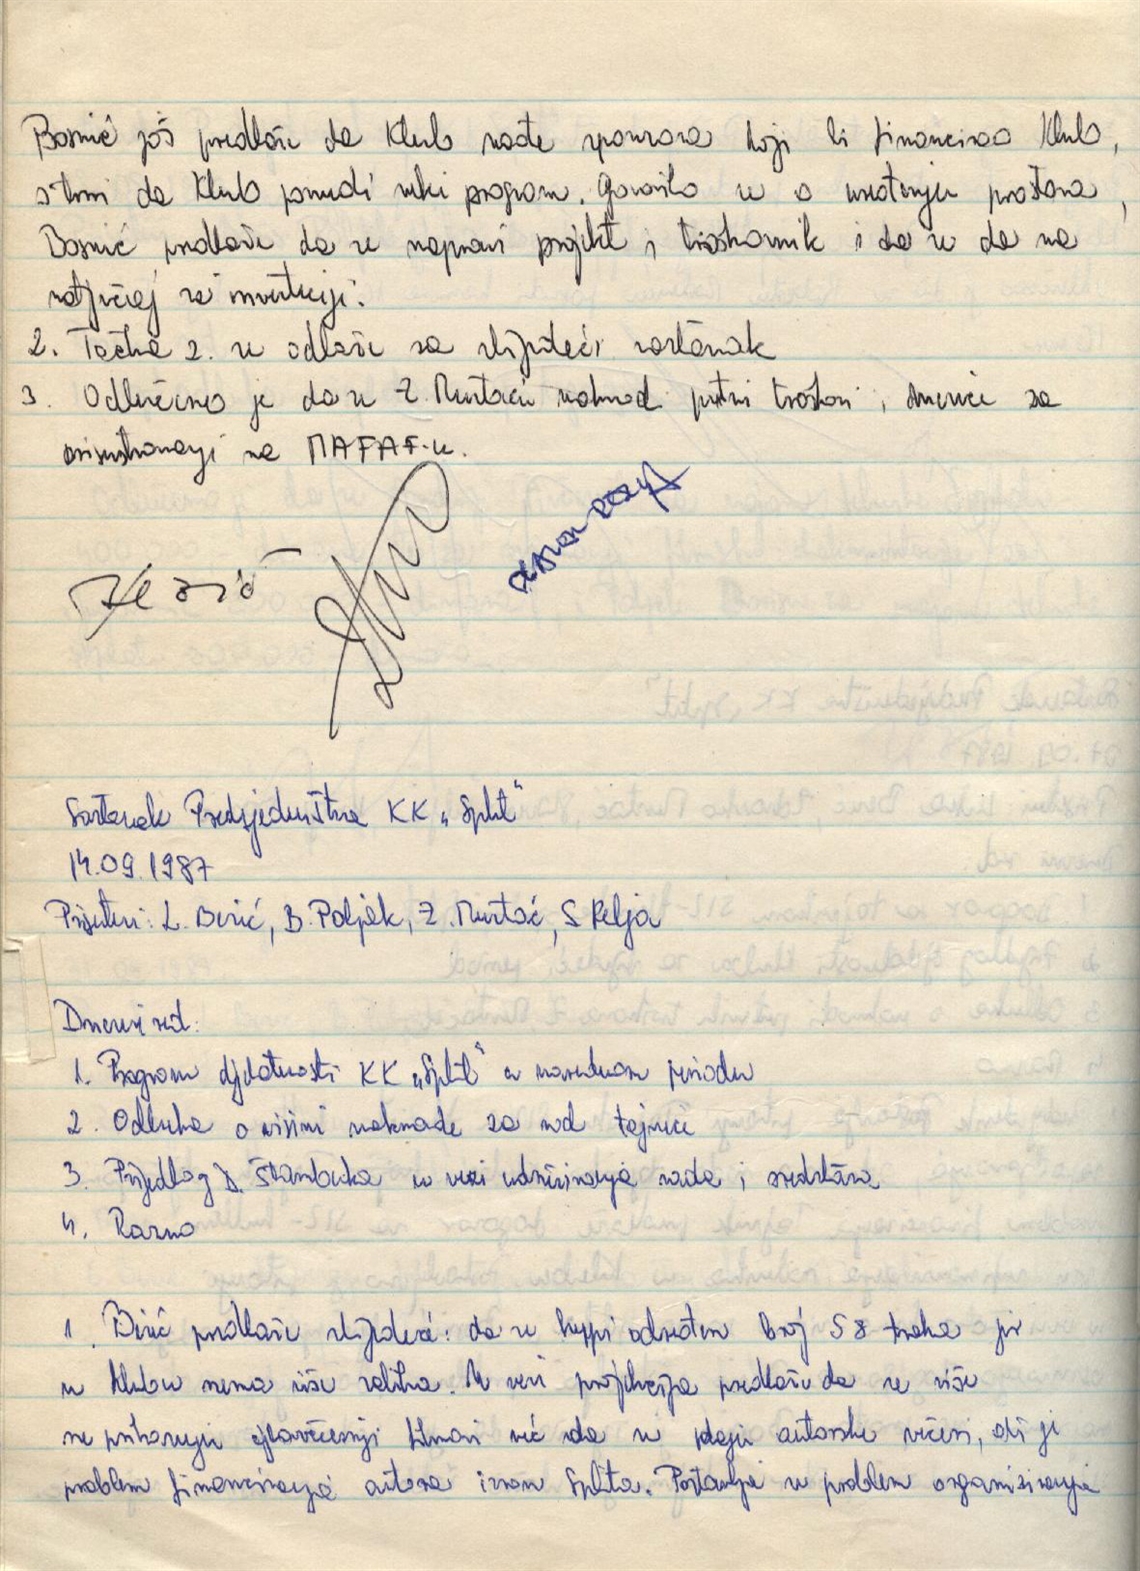 Bosnić još predlaže da Klub nađe sponzora koji bi financirao Klub,
s tim da Klub ponudi neki program. Govorilo se o uređenju prostora,
Bosnić predlaže da se napravi projekt i troškovnik i da se da na
natječaj za investiciji.
2. Točka 2. se odlaže za slijedeći sastanak
3. Odlučeno je da se Z. Mustaću naknadi putni troškovi i dnevnice za
prisustvovanje na MAFAF-u.
Sastanak Predsjedništva KK „Split“
14.09.1987
Prisutni: L. Berić, B. Poljak, Z. Mustać, S. Relja
Dnevni red:
1. Program djelatnosti KK „Split“ u narednom periodu
2. Odluka o visini naknade za rad tajnici
3. Prijedlog D. Štambuka u vezi udruživanja rada i sredstava
4. Razno
1. Berić predlaže slijedeće: da se kupi određen broj S 8 traka jer
u klubu nema više zaliha. U vezi projekcija predlaže da se više
ne prikazuju filmovi već da se daju autorske večeri, ali je
problem financiranja autora izvan Splita. Postavlja se problem organiziranja